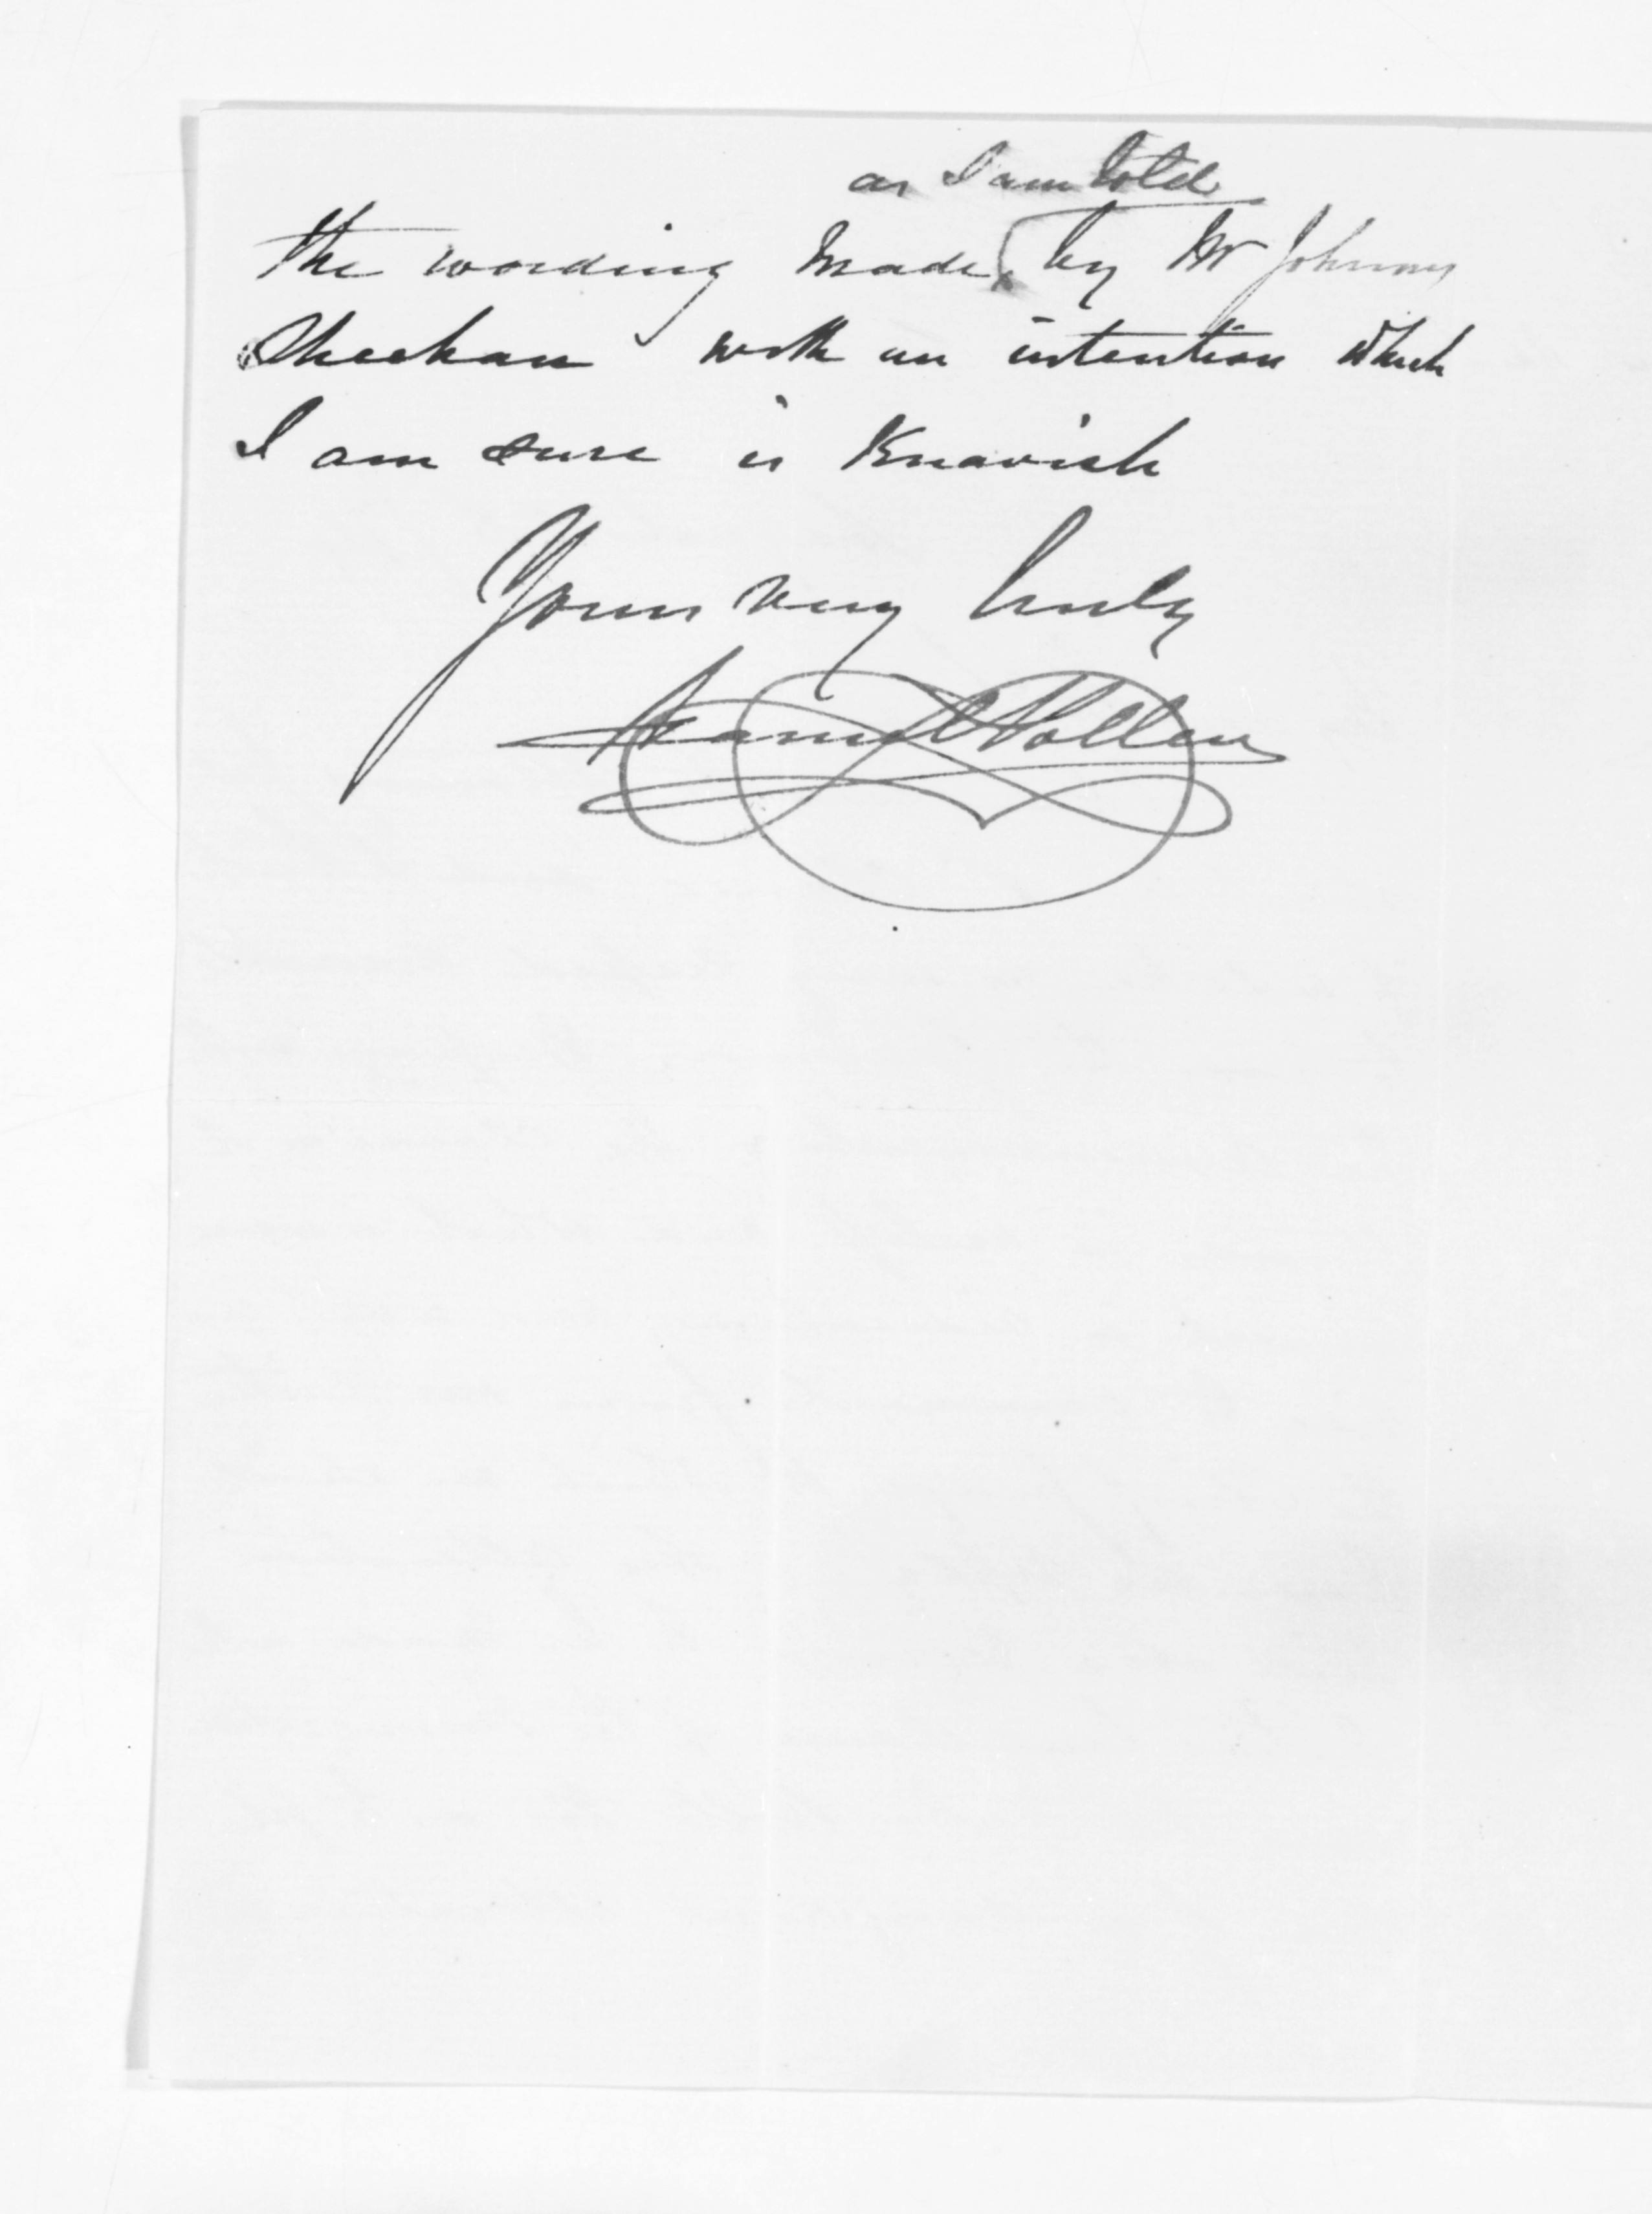 as I am told
the wording made by Mr Johnny
Sheehan with an intention which
I am sure is Knavish
Yours very truly
Daniel Pollen